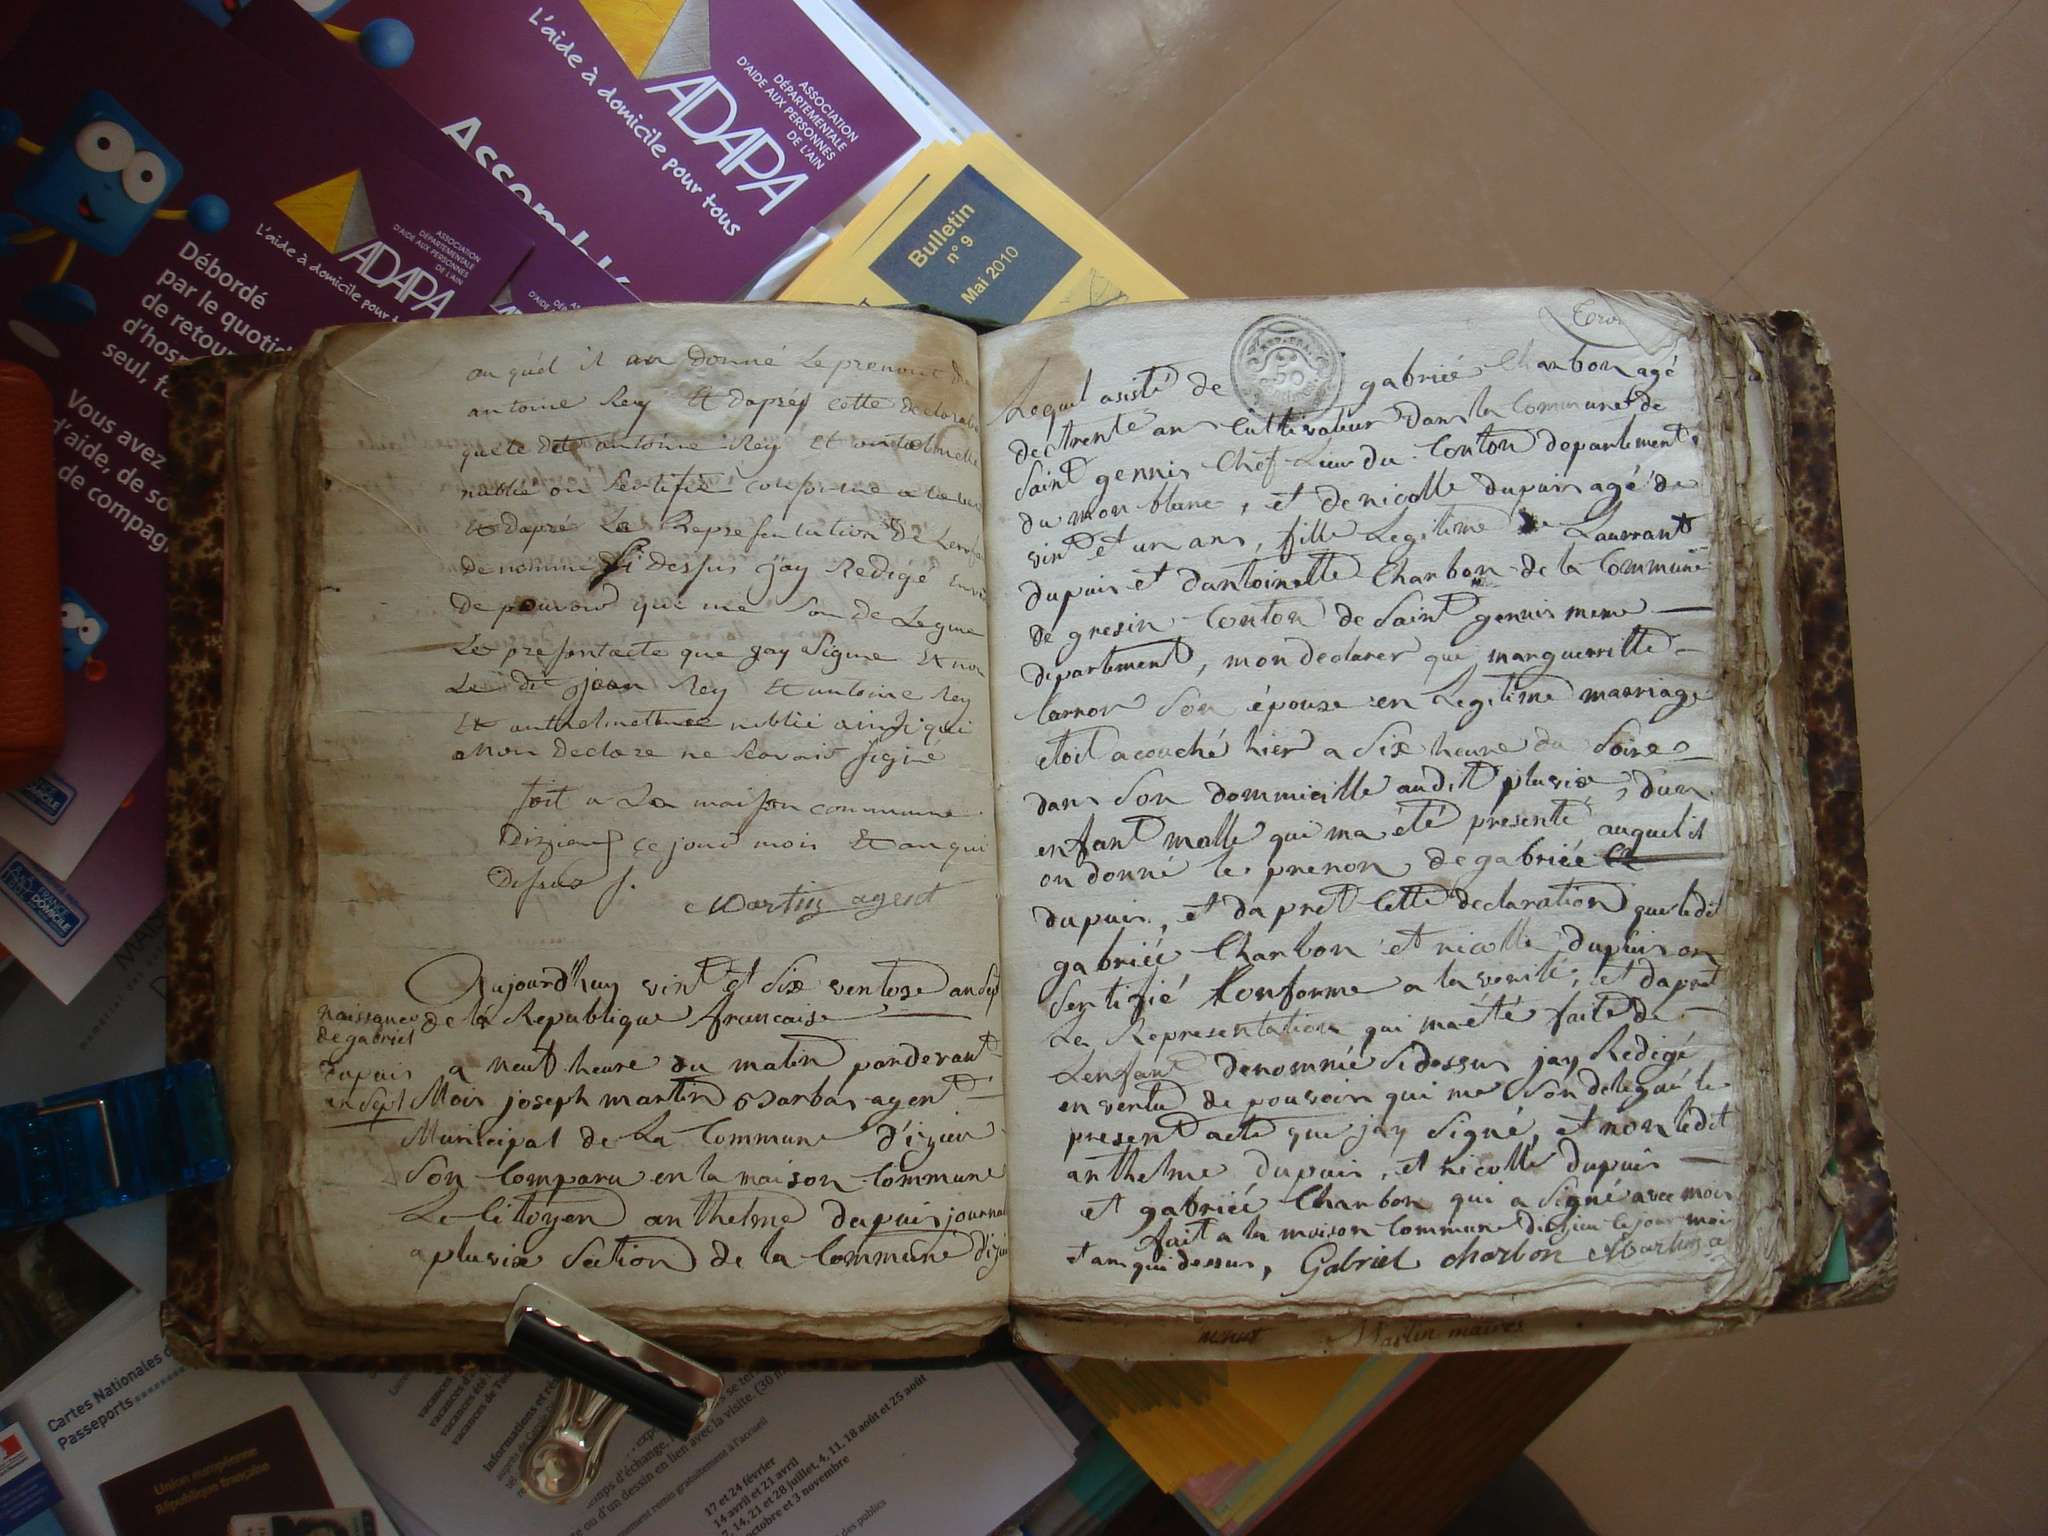 L'aide à domicile pour tous
ADAPA
ASSOCIATION
DÉPARTEMENTALE
D'AIDE AUX PERSONNES
DE L'AIN
Débordé
par le quoti
de retour
d'hos
seul, f
Vous avez
d'aide, de so
de compag
L'aide à domicile pour t
ADAPA
ASSOCIATION
DÉPARTEMENTALE
D'AIDE AUX PERSONNES
DE L'AIN
Bulletin
n° 9
Mai 2010
auquel il on donné le prenom de
antoine Rey Et daprés cette declaratio
que le dit antoine Rey Et anthelmette
nublié on sertifié conforme a la veri
Et daprés La Representation de Lenfan
denommé si dessus jay Redigé En ve
de pouvoir qui me son de Legue
Le present acte que jay signe Et non
Le dit jean Rey Et antoine Rey
Et anthelmette nublié ainsi qui
mon declare ne scavoir signe
fait a La maison commune
Dizieu ce jour mois Et an qui
dessus
Martin agent
Aujourd'huy vint et six ventose an sept
de la Republique francaise
naissance
de gabriel
Dupuis
an sept
a neuf heure du matin pardevant
Moir joseph martin Barbar agent
Municipal de La Commune d'izieu
son Comparu en la maison Commune
Le Citoyen anthelme dupuis journal
a pluvix Section de la Commune dizieu
Lequel asisté de gabrieé Charbon agé
de trente ans Cultivateur dans la Commune de
Saint gennis Chef Lieu du Conton departement
du mon blanc, et de nicolle dupuis agé de
vint et un ans, fille Legitime de Laurrant
dupuis et dantoinette Charbon de la Commune
de gresin Conton de Saint gennis meme
departement, mon declarer que marguerritte
Carron Son épouse en Legitime marriage
etoit acouché hier a Six heure du Soire
dans Son dommicille audit pluvix, d'un
enfant malle qui ma été presenté auquel il
on donné le prenon de gabrieé
dupuis, et daprét Cette declaration que ledit
gabrieé Charbon et nicolle dupuis on
Sertifié Conforme a la verité, et daprét
La Representation qui ma été faite de
Lenfant denommé Sidessus jay Redigé
en vertu de pouvoir qui me Son delegué le
present acte que jay Signé, et non ledit
anthelme dupuis, et nicolle dupuis
et gabrieé Charbon qui a Signé avec moir
fait a la maison Commune dizieu le jour moi
et an qui dessus, Gabriel charbon Martin a
Martin maires
Cartes Nationales d
Passeports
Union européenne
République française
Informations et ré
17 et 24 février
14 avril et 21 avril
7, 14, 21 et 28 juillet, 4, 11, 18 août et 25 août
octobre et 3 novembre